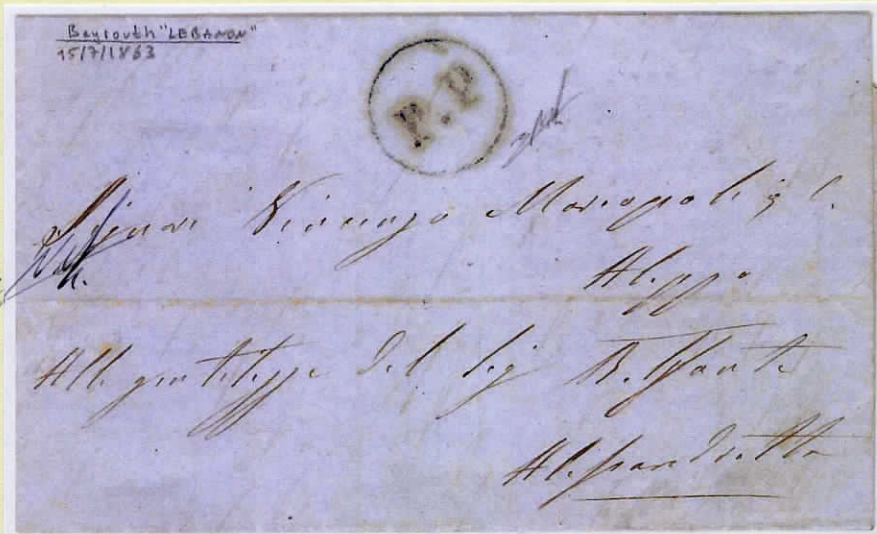 Beyrouth "LEBANON"
15/7/1863
P.P
Signori Vincenzo Monopoli & C.
Aleppo
Alla gentilezza del Sig Belfante
Alessandretta